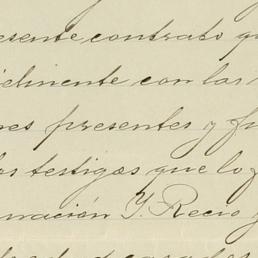 esente contrato qu
ielmente con las
res presentes y fu
os testigos que lo f
nación Y. Recio y